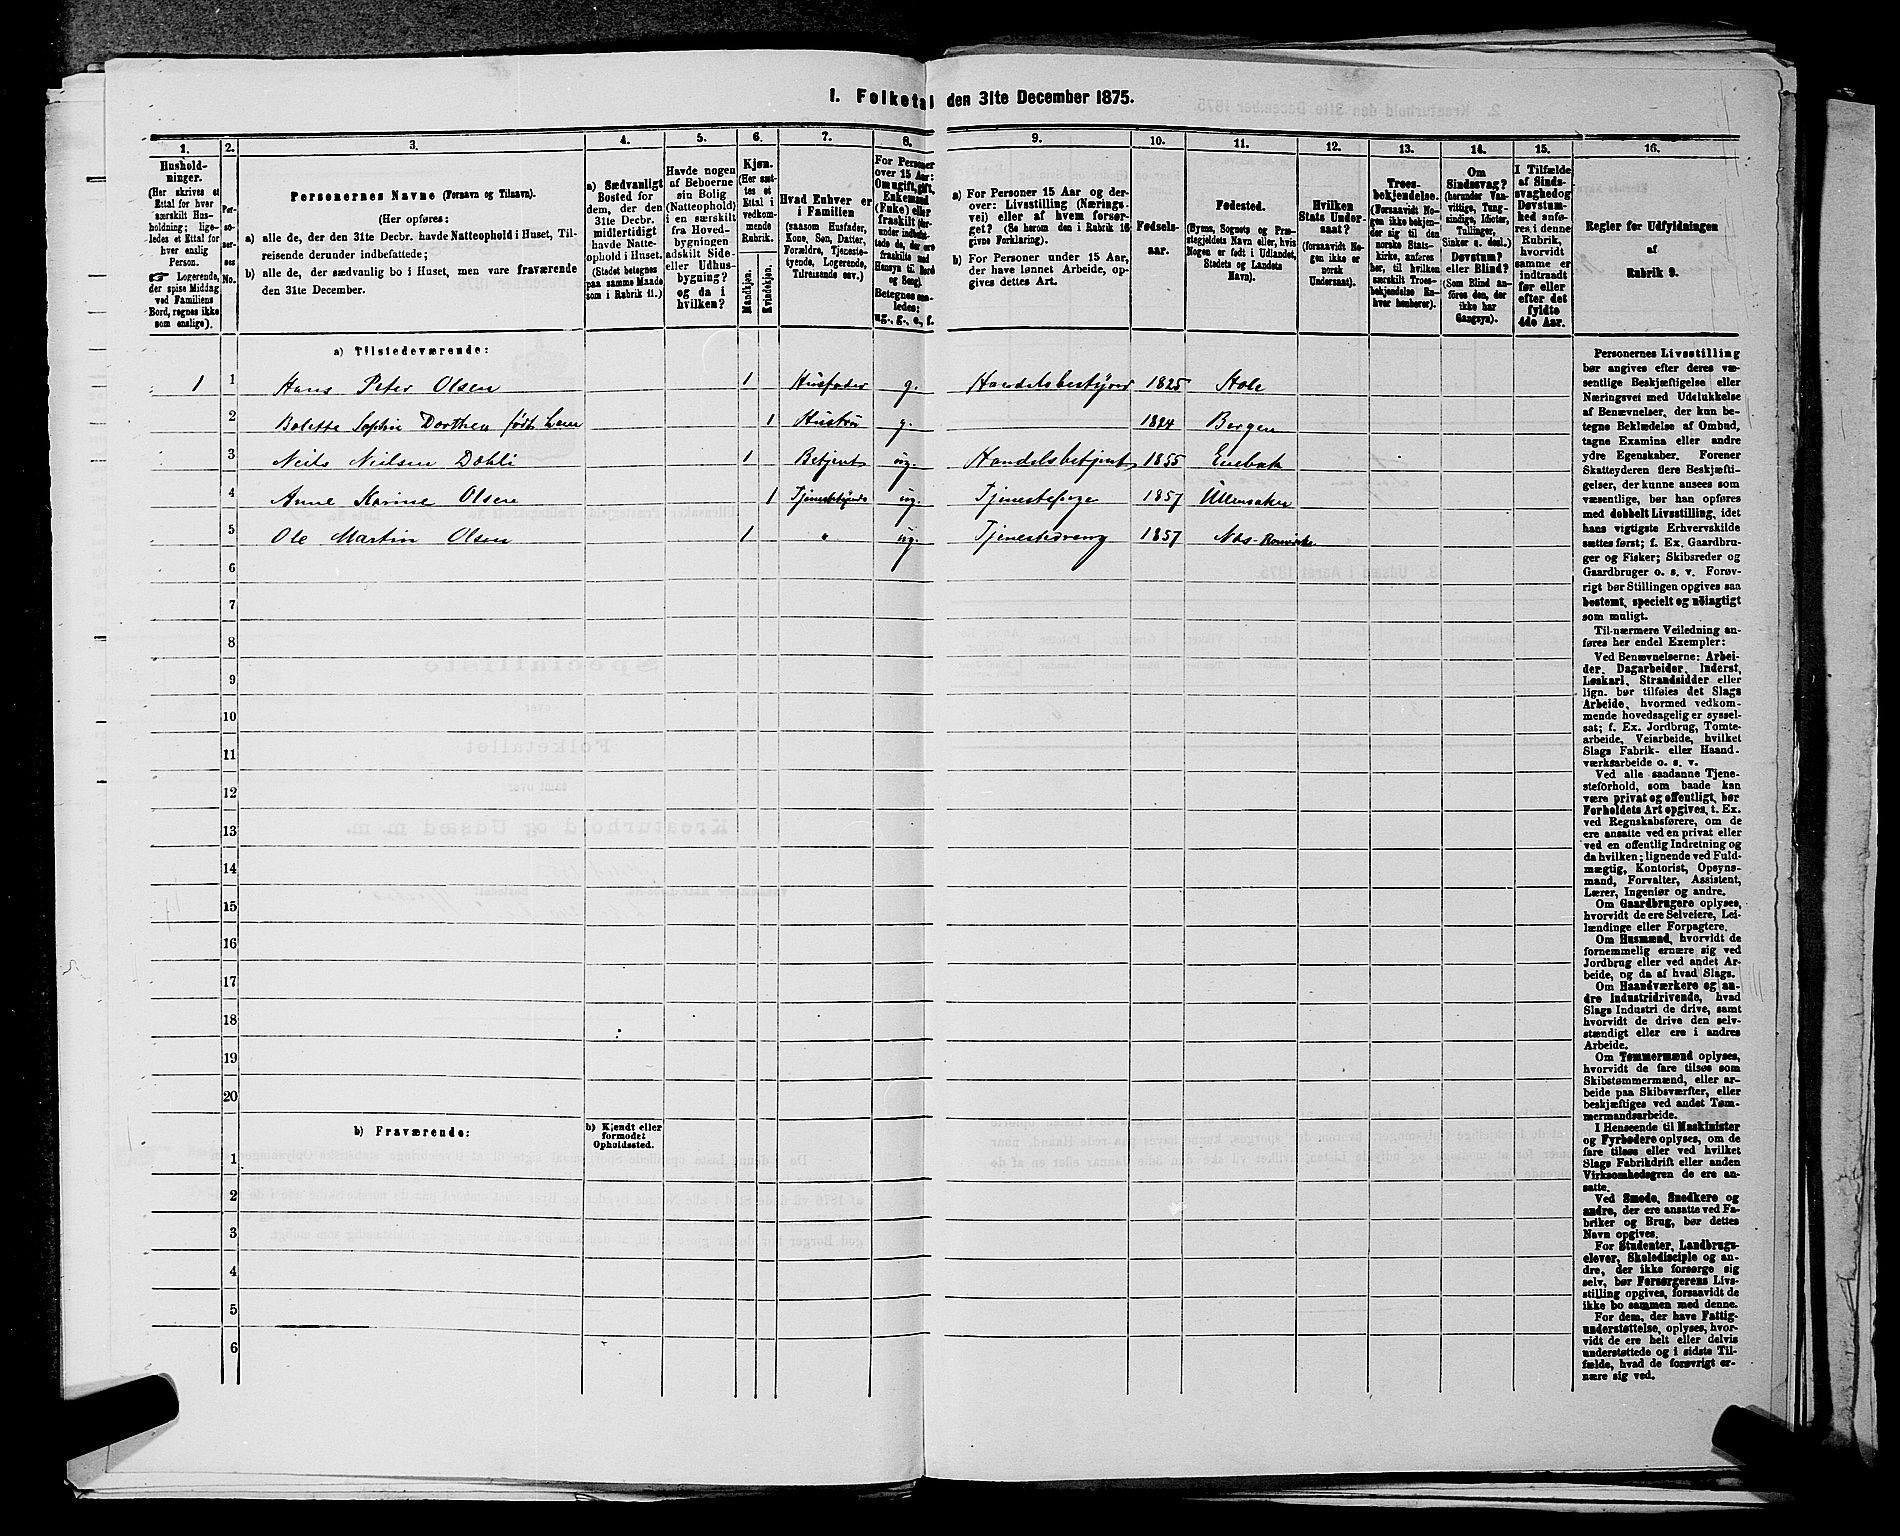 1. Folketal den 31te December 1875.
1. 2. 3. 4. 5. 6. 7. 8. 9. 10. 11. 12. 13. 14. 15. 16.
Hushold-
ninger.
(Her skrives et
Ettal for hver
særskilt Hus-
holdning; lige-
ledes et Ettal for
hver enslig
Person.
☞ Logerende,
der spise Middag
ved Familiens
Bord, regnes ikke
som enslige).
Per-
so-
ner-
nes
No.
Personernes Navne (Fornavn og Tilnavn).
(Her opføres:
a) alle de, der den 31te Decbr. havde Natteophold i Huset, Til-
reisende derunder indbefattede;
b) alle de, der sædvanlig bo i Huset, men vare fraværende
den 31te December.
a) Sædvanligt
Bosted for
dem, der den
31te Decbr.
midlertidigt
havde Natte-
ophold i Huset.
(Stedet betegnes
paa samme Maade
som i Rubrik 11.)
Havde nogen
af Beboerne
sin Bolig
(Natteophold)
i en særskilt
fra Hoved-
bygningen
adskilt Side-
eller Udhus-
bygning?
og da i
hvilken?
Kjøn.
(Her sæt-
tes et
Ettal i
vedkom-
mende
Rubrik.
Mandkjøn.
Kvindekjøn.
Hvad Enhver er
i Familien
(saasom Husfader,
Kone, Søn, Datter,
Forældre, Tjeneste-
tyende, Logerende,
Tilreisende osv.)
For Personer
over 15 Aar:
Om ugift, gift,
Enkemand
(Enke) eller
fraskilt (her-
under indbefat-
tede de, der ere
fraskilte med
Hensyn til Bord
og Seng).
Betegnes saa-
ledes:
ug., g., e., f.
a) For Personer 15 Aar og der-
over: Livsstilling (Nærings-
vei) eller af hvem forsør-
get? (Se herom den i Rubrik 16
givne Forklaring).
b) For Personer under 15 Aar,
der have lønnet Arbeide, op-
gives dettes Art.
Fødsels-
aar.
Fødested.
(Byens, Sognets og Præ-
stegjeldets Navn eller, hvis
Nogen er født i Udlandet,
Stedets og Landets
Navn).
Hvilken
Stats Under-
saat?
(forsaavidt No-
gen ikke er
norsk
Undersaat).
Troes-
bekjendelse.
(Forsaavidt No-
gen ikke bekjen-
der sig til den
norske Stats-
kirke, anføres
her, til hvilken
særskilt Troes-
bekjendelse En-
hver henhører).
Om
Sindssvag?
(herunder Van-
vittige, Tung-
sindige, Idioter,
Tullinger,
Sinker o. desl.).
Døvstum?
eller Blind?
(Som Blind an-
føres den, der
ikke har
Gangsyn).
I Tilfælde
af Sinds-
svaghed og
Døvstum-
hed anfø-
res i denne
Rubrik,
hvorvidt
samme er
indtraadt
før eller
efter det
fyldte
4de Aar.
Regler for Udfyldningen
af
Rubrik 9.
a) Tilstedeværende:
1 1 Hans Peter Olsen 1 Husfader g. Handelsbestyrer 1825 Hole
2 Bolette Sophie Dorthea født 1 Hustru g. 1824 Bergen
3 Niels Nielsen Dahli 1 Betjent ug. Handelsbetjent 1855 Enebak
4 Anne Karine Olsen 1 Tjenestetyende ug. Tjenestepige 1857 Ullensaker
5 Ole Martin Olsen 1 " ug. Tjenestedreng 1857 Næs-Romerike
6
7
8
9
10
11
12
13
14
15
16
17
18
19
20
b) Fraværende:
b) Kjendt eller
formodet
Opholdssted.
1
2
3
4
5
6
Personernes Livsstilling
bør angives efter deres væ-
sentlige Beskjæftigelse eller
Næringsvei med Udelukkelse
af Benævnelser, der kun be-
tegne Beklædelse af Ombud,
tagne Examina eller andre
ydre Egenskaber. Forener
Skatteyderen flere Beskjæfti-
gelser, der kunne ansees som
væsentlige, bør han opføres
med dobbelt Livsstilling, idet
hans vigtigste Erhvervskilde
sættes først; f. Ex. Gaardbru-
ger og Fisker; Skibsreder og
Gaardbruger o. s. v. Forøv-
rigt bør Stillingen opgives saa
bestemt, specielt og nøiagtigt
som muligt.
Til nærmere Veiledning an-
føres her endel Exempler:
Ved Benævnelserne: Arbei-
der, Dagarbeider, Inderst,
Løskarl, Strandsidder eller
lign. bør tilføies det Slags
Arbeide, hvormed vedkom-
mende hovedsagelig er syssel-
sat; f. Ex. Jordbrug, Tomte-
arbeide, Veiarbeide, hvilket
Slags Fabrik- eller Haand-
værksarbeide o. s. v.
Ved alle saadanne Tjene-
steforhold, som baade kan
være privat og offentligt, bør
Forholdets Art opgives, t. Ex.
ved Regnskabsførere, om de
ere ansatte ved en privat eller
ved en offentlig Indretning og
da hvilken; lignende ved Fuld-
mægtig, Kontorist, Opsyns-
mand, Forvalter, Assistent,
Lærer, Ingeniør og andre.
Om Gaardbrugere oplyses,
hvorvidt de ere Selveiere, Lei-
lændinge eller Forpagtere.
Om Husmænd, hvorvidt de
fornemmelig ernære sig ved
Jordbrug eller ved andet Ar-
beide, og da af hvad Slags.
Om Haandværkere og an-
dre Industridrivende, hvad
Slags Industri de drive, samt
hvorvidt de drive den selv-
stændigt eller ere i andres
Arbeide.
Om Tømmermænd oplyses,
hvorvidt de fare tilsøs som
Skibstømmermænd, eller ar-
beide paa Skibsværfter, eller
beskjæftiges ved andet Tøm-
mermandsarbeide.
I Henseende til Maskinister
og Fyrbødere oplyses, om de
fare tilsøs eller ved hvilket
Slags Fabrikdrift eller anden
Virksomhedsgren de ere an-
satte.
Ved Smede, Snedkere og
andre, der ere ansatte ved Fa-
briker og Brug, bør dettes
Navn opgives.
For Studenter, Landbrugs-
elever, Skoledisciple og an-
dre, der ikke forsørge sig
selv, bør Forsørgerens Livs-
stilling opgives, forsaavidt de
ikke bo sammen med denne.
For dem, der have Fattig-
understøttelse, oplyses, hvor-
vidt de ere helt eller delvis
understøttede og i sidste Til-
fælde, hvad de forøvrigt er-
nære sig ved.